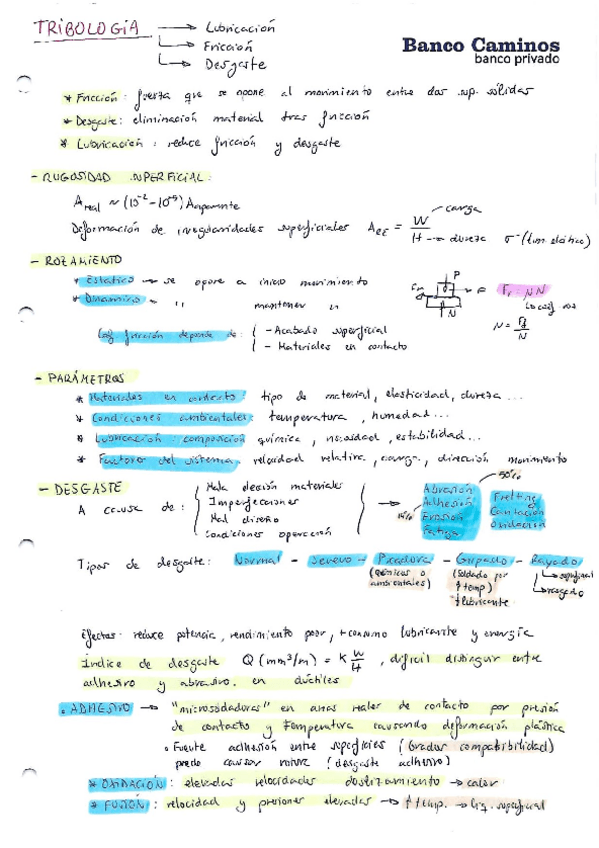 TRIBOLOGÍA → Lubricación
→ Fricción
→ Desgaste
Banco Caminos
banco privado
* Fricción: fuerza que se opone al movimiento entre dos sup. sólidas
* Desgaste: eliminación material tras fricción
* Lubricación: reduce fricción y desgaste
- RUGOSIDAD SUPERFICIAL:
A real ~ (10⁻² - 10⁻⁵) A aparente
Deformación de irregularidades superficiales A RE = W/H
→ carga
→ dureza
- ROZAMIENTO
* Estático → se opone a inicio movimiento
* Dinámico → " mantener "
Coef fricción depende de: { - Acabado superficial
- Materiales en contacto
P
N
- PARÁMETROS
* Materiales en contacto: tipo de material, elasticidad, dureza...
* Condiciones ambientales: temperatura, humedad...
* Lubricación: composición química, viscosidad, estabilidad...
* Factores del sistema: velocidad relativa, carga, dirección movimiento
- DESGASTE
A causa de: { Mala elección materiales
Imperfecciones
Mal diseño
Condiciones operación
→ Abrasión 50%
Adhesión 15%
Erosión
Fatiga
Fretting
Cavitación
Oxidación
Tipos de desgaste: Normal - Severo - Picadura - Gripado - Rayado
(químicas o ambientales)
(Soldado por ↑ temp)
↓ lubricante
→ superficial
→ rasgado
Efectos: reduce potencia, rendimiento peor, + consumo lubricante y energía
Índice de desgaste Q (mm³/m) = K W/H, difícil distinguir entre
adhesivo y abrasivo en dúctiles
• ADHESIVO → "microsoldaduras" en áreas reales de contacto por presión
de contacto y temperatura causando deformación plástica
• Fuerte adhesión entre superficies (grados compatibilidad)
puede causar rotura (desgaste adhesivo)
* OXIDACIÓN: elevadas velocidades deslizamiento → calor
* FUSIÓN: velocidad y presiones elevadas → ↑ temp. → liq. superficial